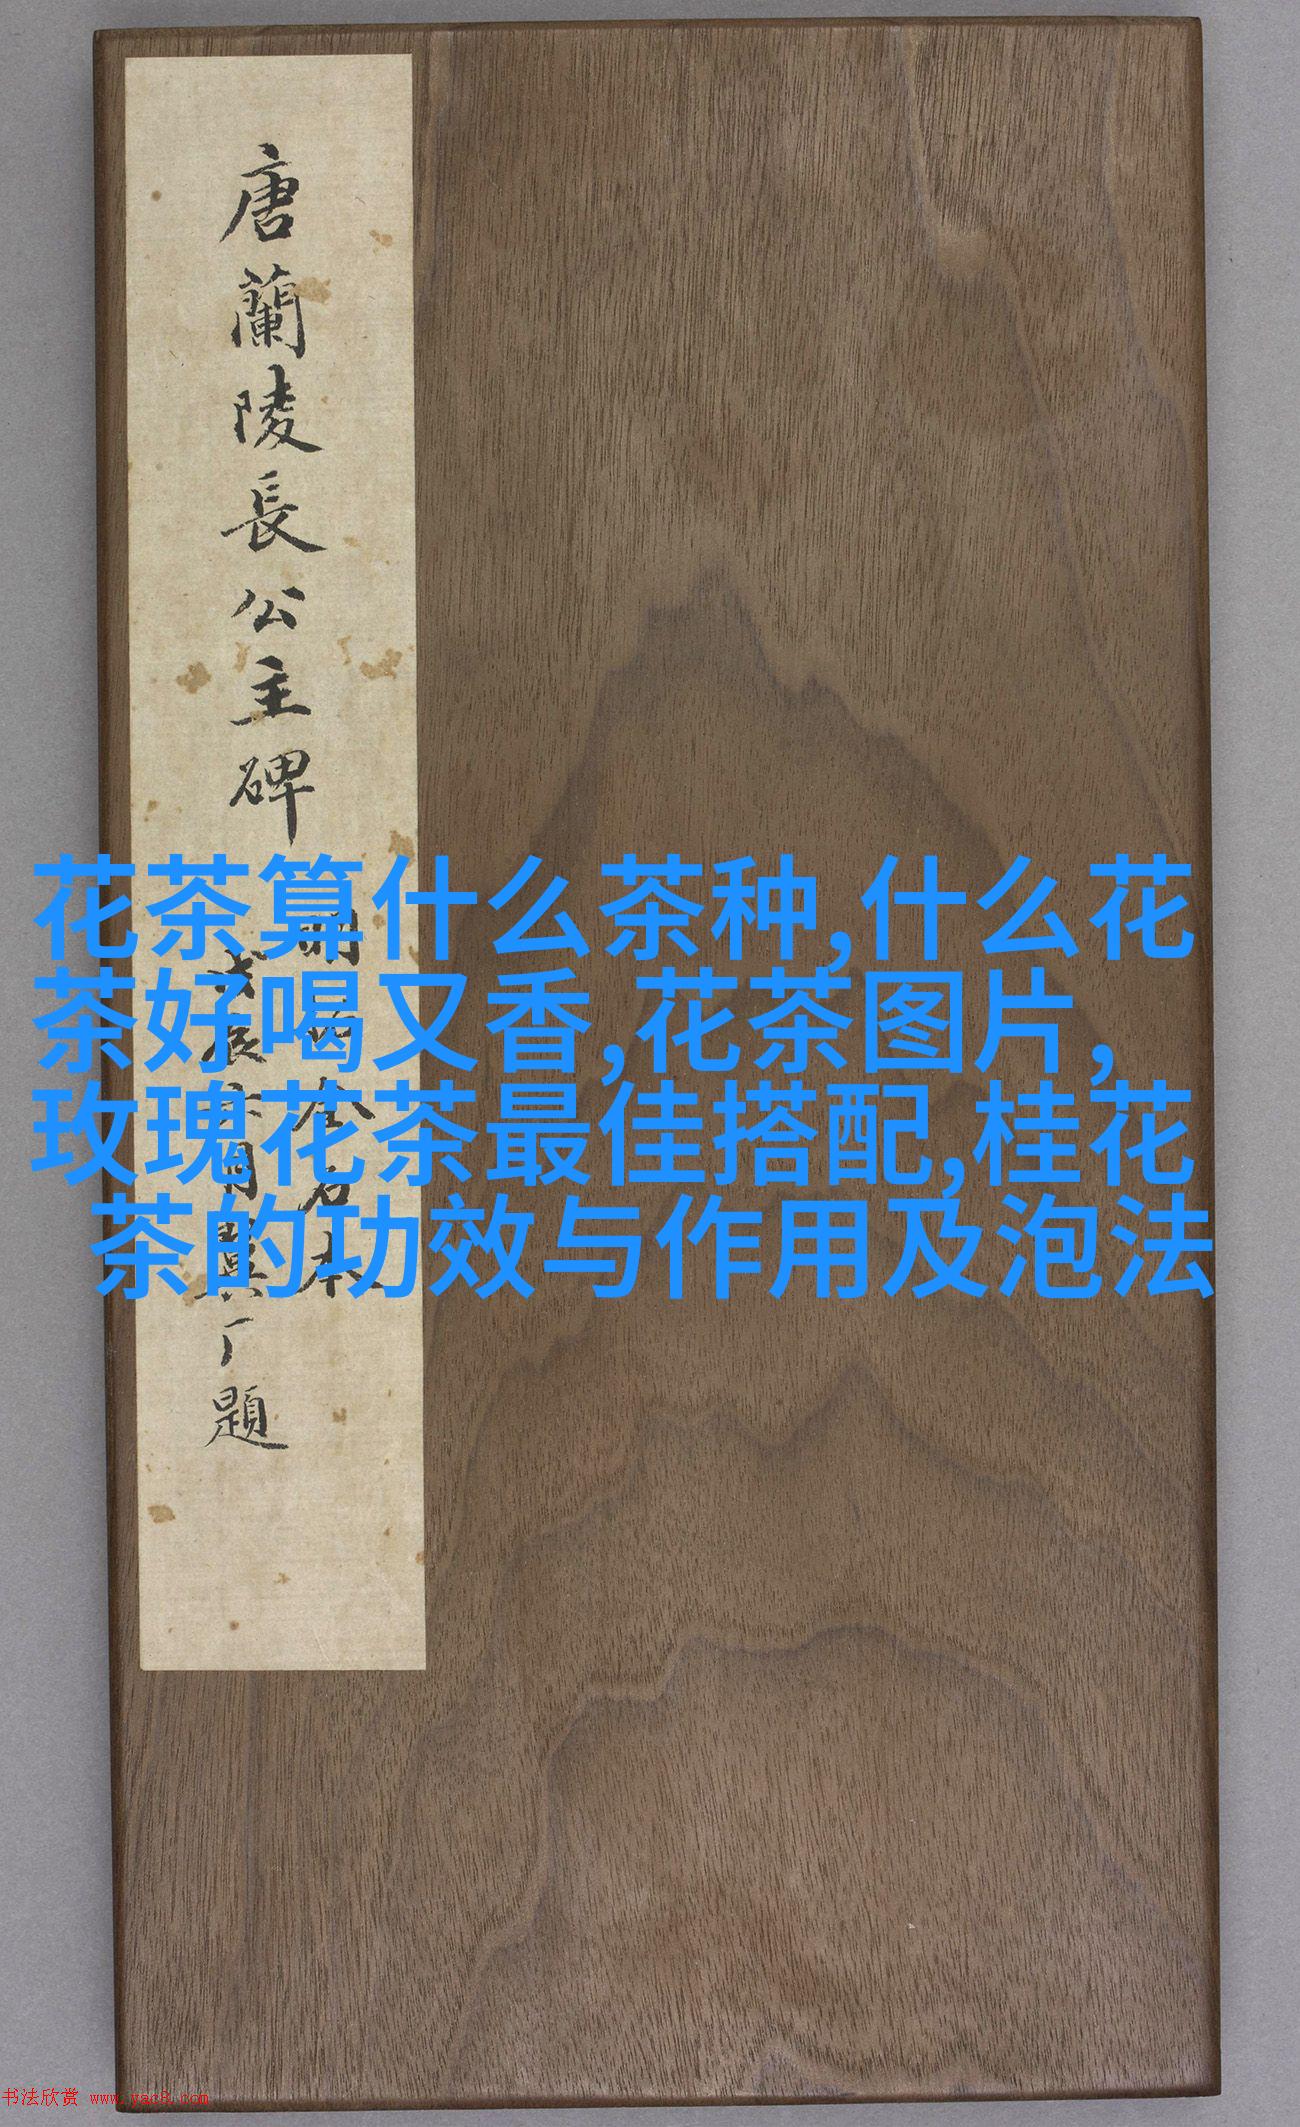 唐蘭陵長公主碑
明拓全石本
戊辰六月翼厂題
花茶算什么茶种,什么花
茶好喝又香,花茶图片,
玫瑰花茶最佳搭配,桂花
茶的功效与作用及泡法
书法欣赏 www.yac8.com